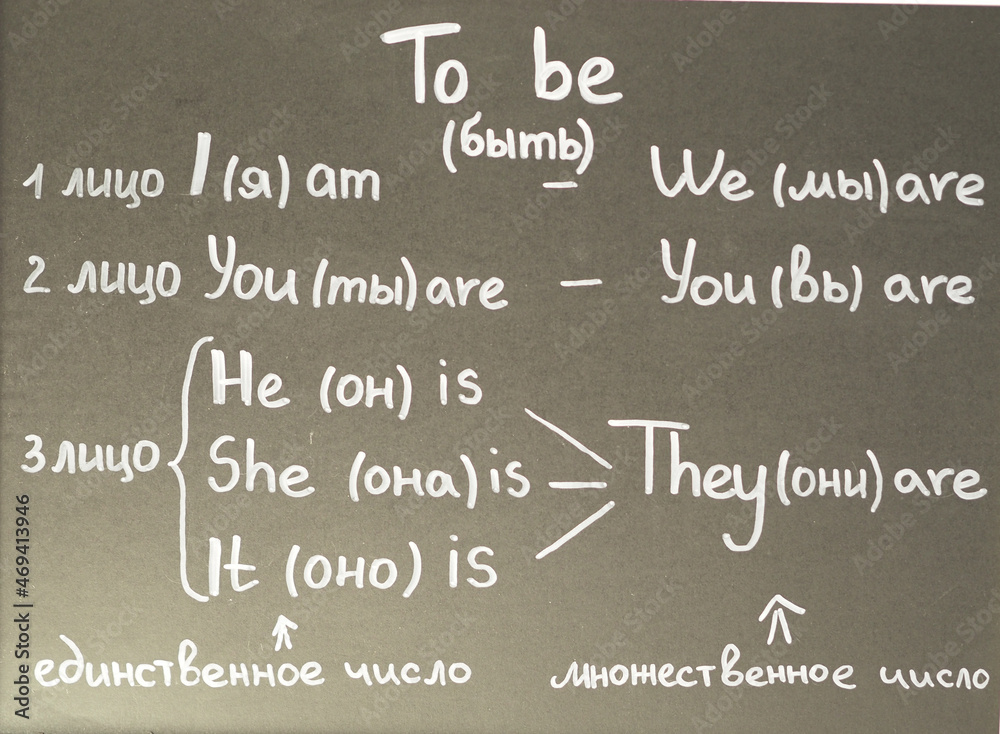 To be
(быть)
1 лицо I (я) am – We (мы) are
2 лицо You (ты) are – You (вы) are
3 лицо
He (он) is
She (она) is
It (оно) is
They (они) are
единственное число
множественное число
Adobe Stock | #469413946